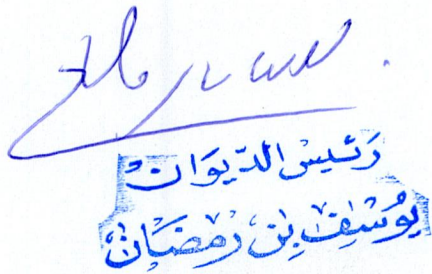 رَئيسُ الدّيوَانْ
يُوسُفْ بِنْ رَمضَانْ